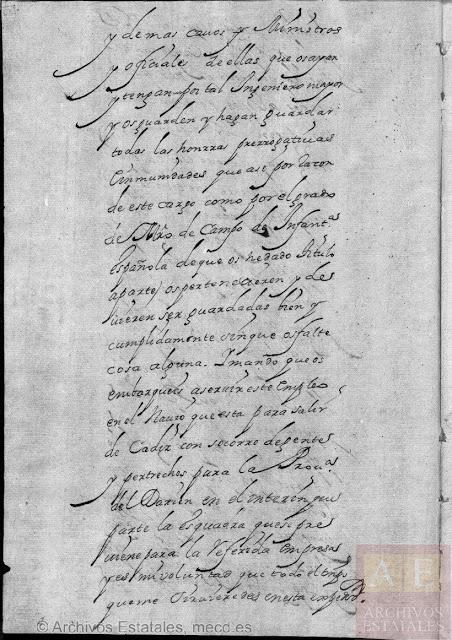 y demas cavos y Ministros
y ofiçiales de ellas que os ayan
y tengan por tal Ingeniero mayor
y os guarden y hagan guardar
todas las honrras prerrogativas
Inmunidades que asi por raçon
de este cargo como por el grado
de Mro de Campo de Infantᵃ
española de que os he dado titulo
aparte, os pertenecieren y de
vieren ser guardadas bien y
cumplidamente sin que os falte
cosa alguna. Y mando que os
embarqueis a servir este Empleo
en el Navio que esta para salir
de Cadiz con socorro de gentes
y pertrechos para la Provᵃ
del Darien en el interin que
parte la esquadra que se pre
viene para la referida Empresa
y es mi voluntad que todo el tmpo
que me sirvieredes en esta
ARCHIVOS ESTATALES
© Archivos Estatales, mecd.es